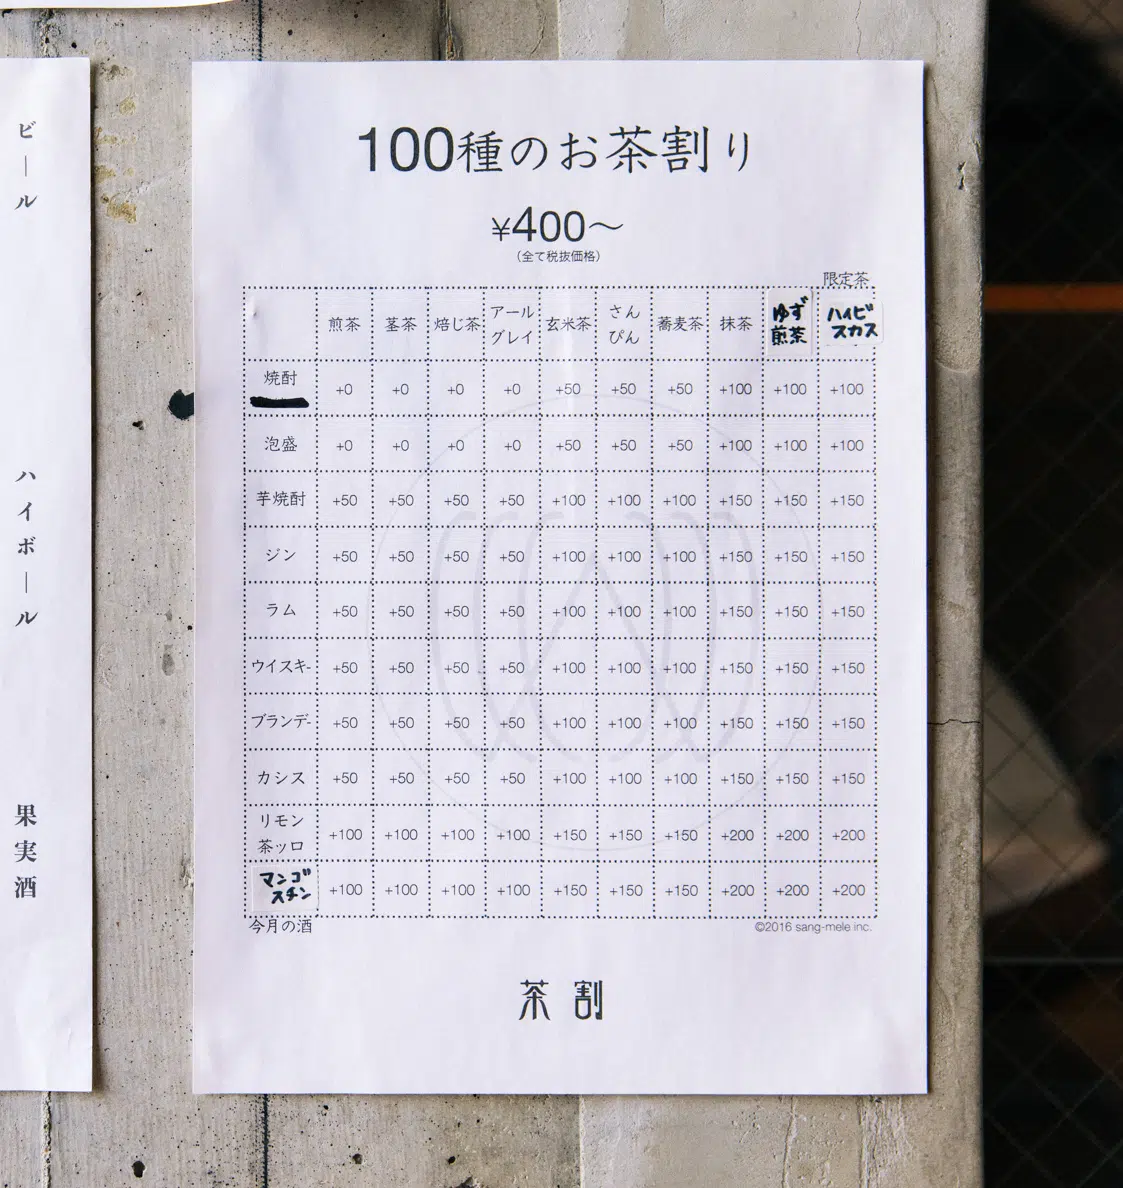 ビール
ハイボール
果実酒
100種のお茶割り
¥400〜
(全て税抜価格)
限定茶
煎茶 茎茶 焙じ茶 アールグレイ 玄米茶 さんぴん 蕎麦茶 抹茶 ゆず煎茶 ハイビスカス
焼酎 +0 +0 +0 +0 +50 +50 +50 +100 +100 +100
泡盛 +0 +0 +0 +0 +50 +50 +50 +100 +100 +100
芋焼酎 +50 +50 +50 +50 +100 +100 +100 +150 +150 +150
ジン +50 +50 +50 +50 +100 +100 +100 +150 +150 +150
ラム +50 +50 +50 +50 +100 +100 +100 +150 +150 +150
ウイスキー +50 +50 +50 +50 +100 +100 +100 +150 +150 +150
ブランデー +50 +50 +50 +50 +100 +100 +100 +150 +150 +150
カシス +50 +50 +50 +50 +100 +100 +100 +150 +150 +150
リモン茶ッロ +100 +100 +100 +100 +150 +150 +150 +200 +200 +200
マンゴスチン +100 +100 +100 +100 +150 +150 +150 +200 +200 +200
今月の酒
©2016 sang-mele inc.
茶割